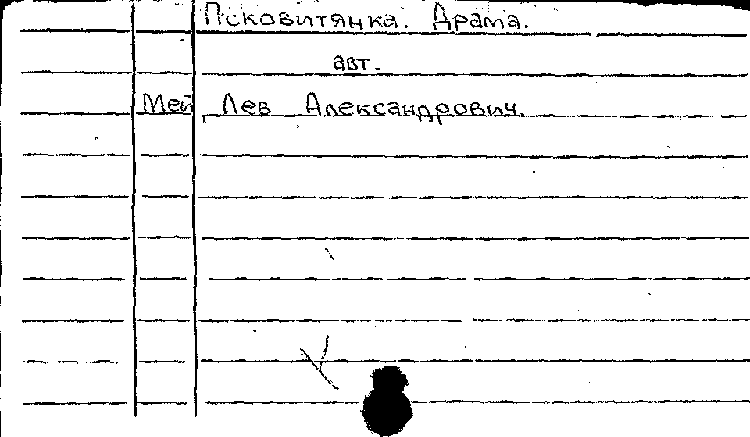 Псковитянка. Драма.
авт.
Мей, Лев Александрович.